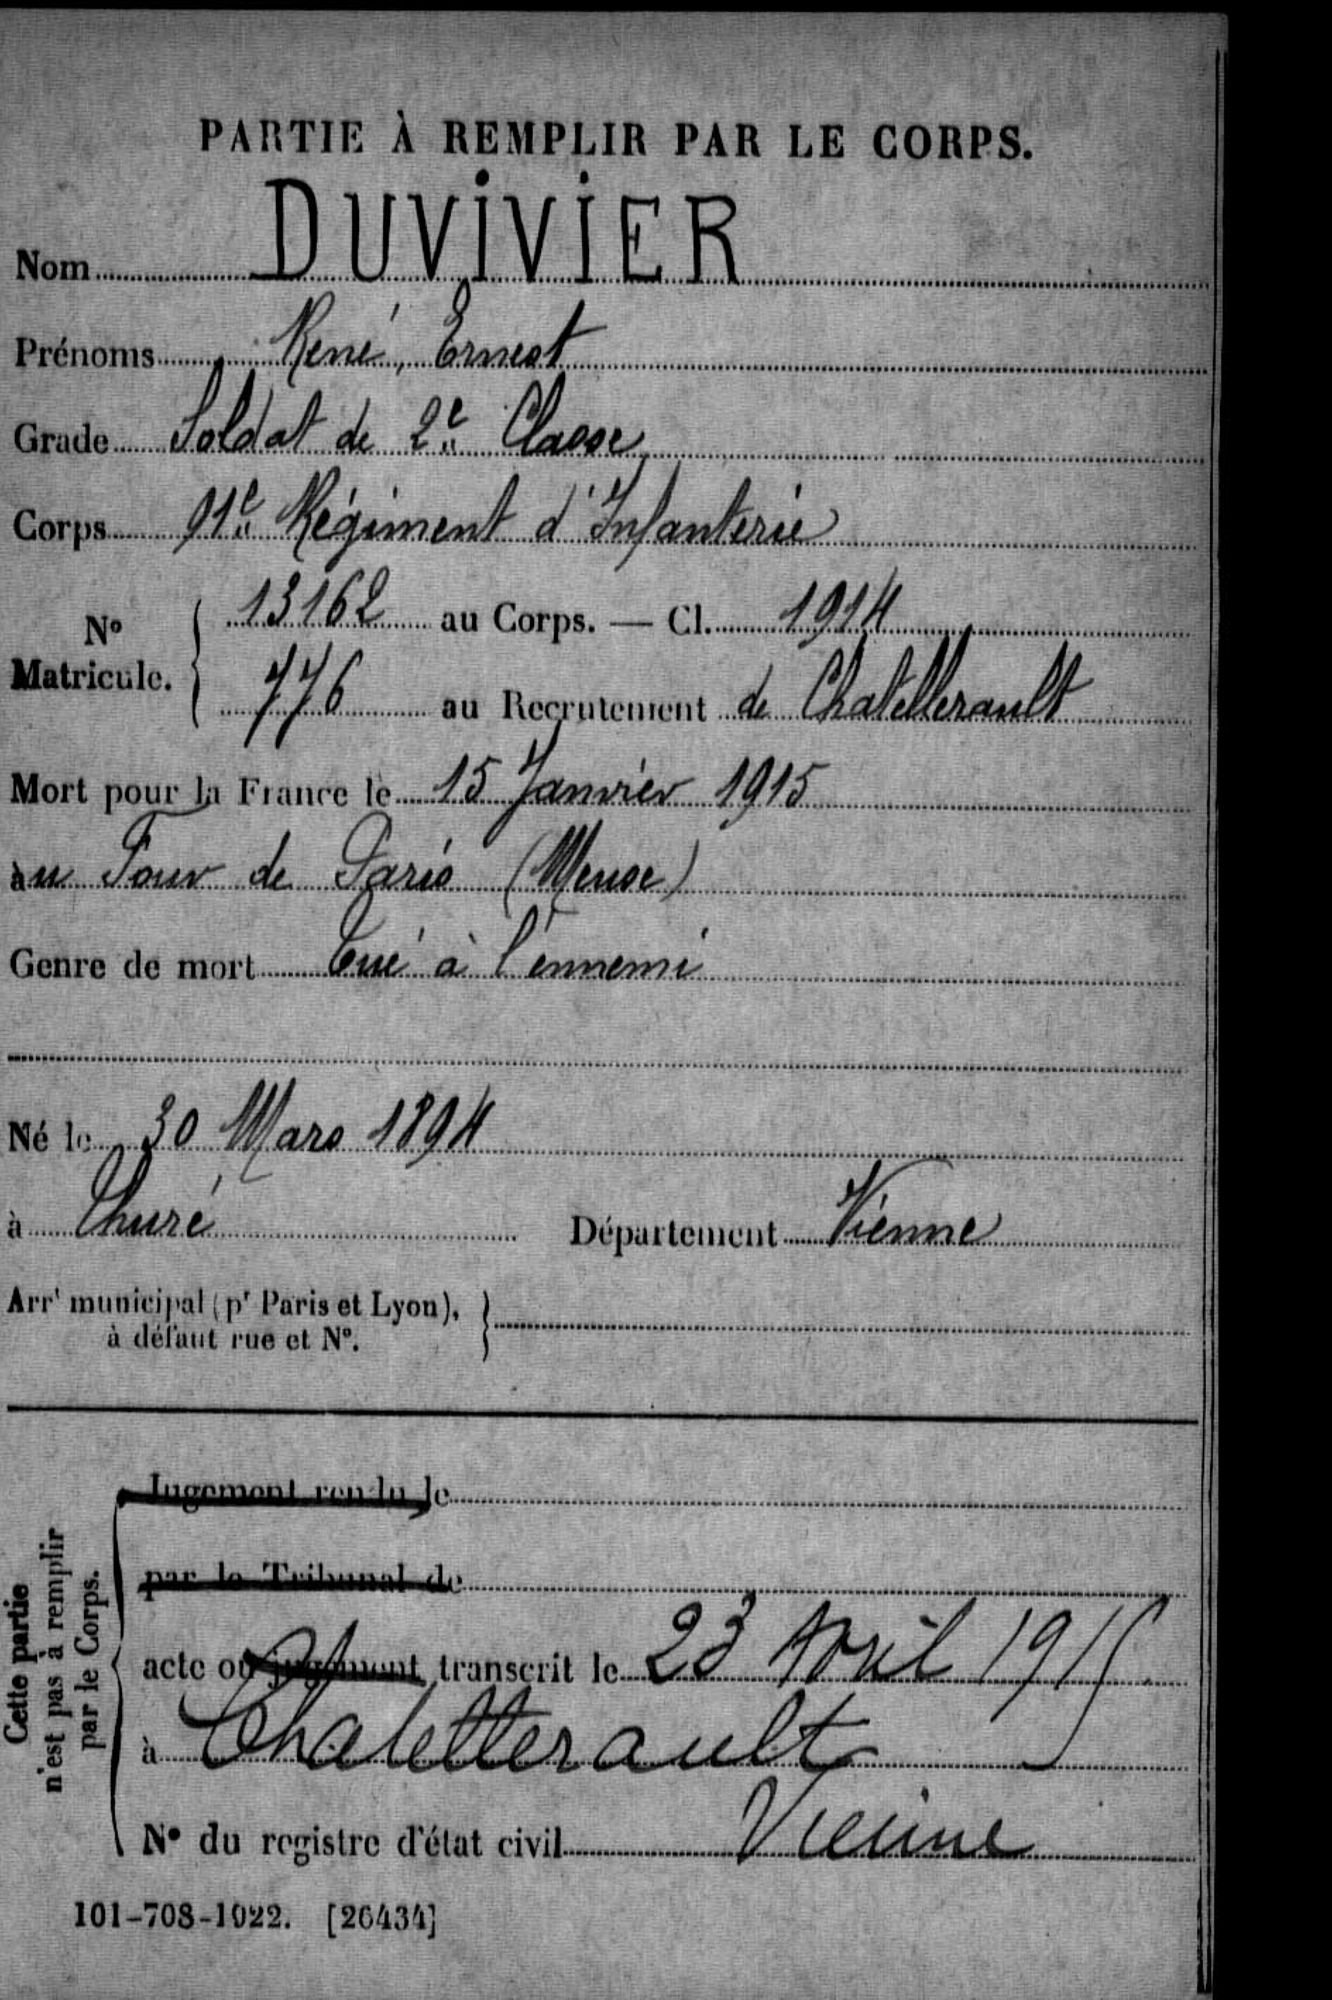 PARTIE À REMPLIR PAR LE CORPS.
Nom DUVIVIER
Prénoms René, Ernest
Grade Soldat de 2e Classe
Corps 91e Régiment d'Infanterie
No Matricule. { 13162 au Corps. — Cl. 1914
776 au Recrutement de Chatellerault
Mort pour la France le 15 Janvier 1915
au Four de Paris (Meuse)
Genre de mort Tué à l'ennemi
Né le 30 Mars 1894
à Thuré Département Vienne
Arrt municipal (pr Paris et Lyon), }
à défaut rue et No.
Cette partie
n'est pas à remplir
par le Corps.
Jugement rendu le
par le Tribunal de
acte ou jugement transcrit le 23 Avril 1915
à Chatellerault
No du registre d'état civil Vienne
101-708-1922. [26434]